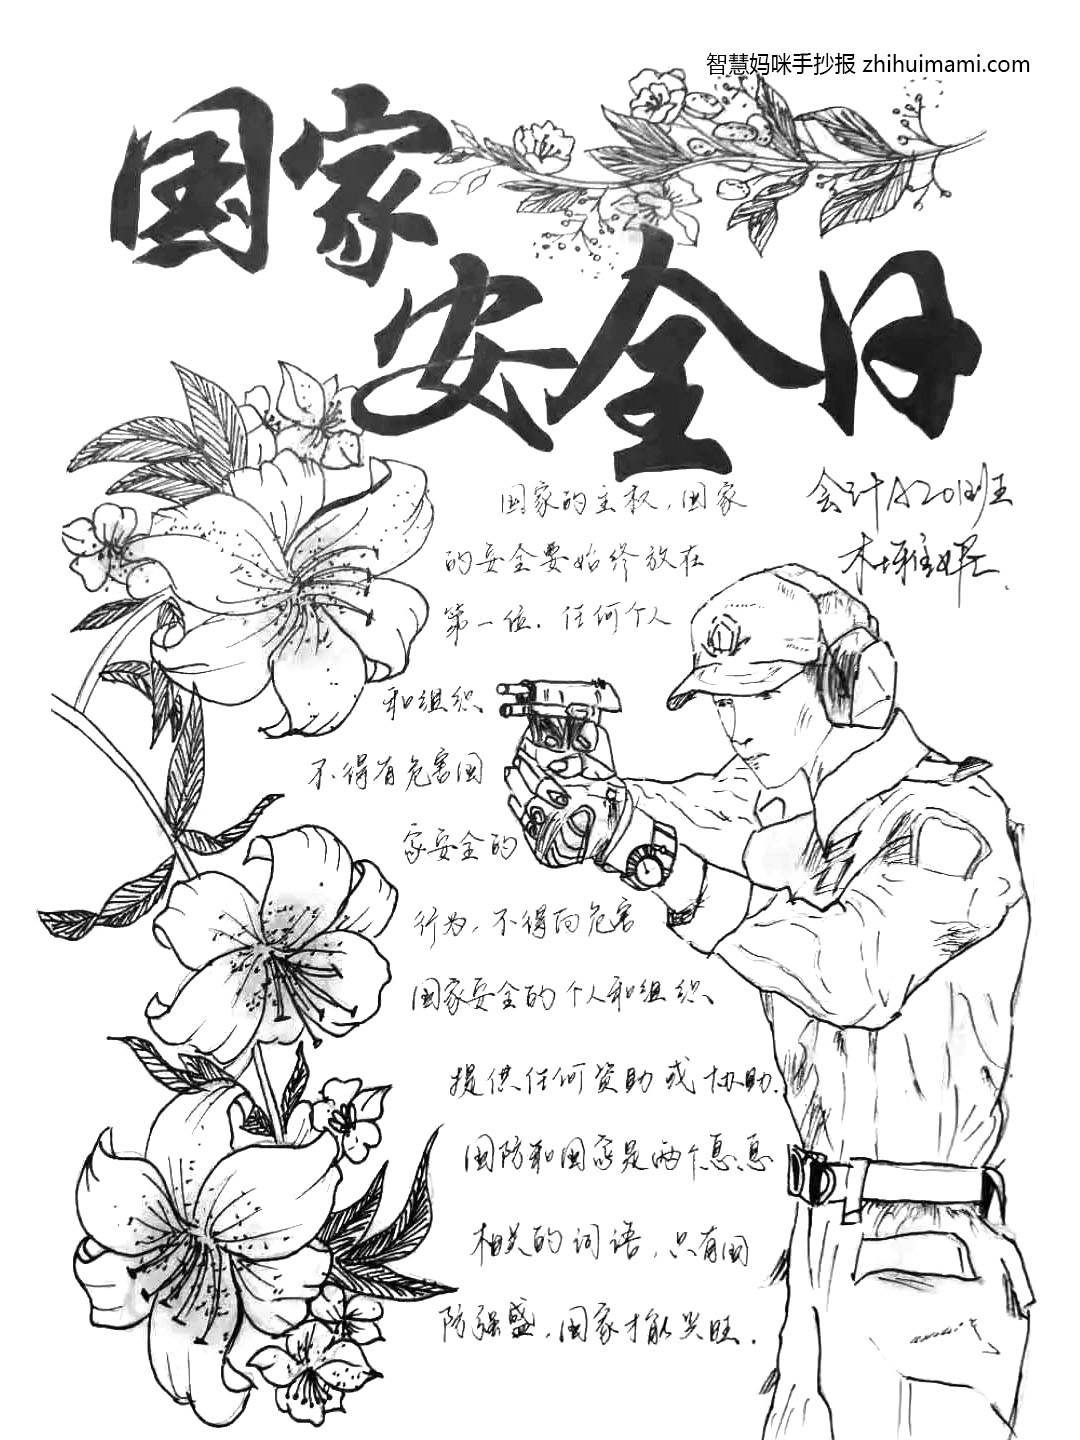 智慧妈咪手抄报 zhihuimami.com
国家
安全日
会计A2018班
国家的主权，国家
的安全要始终放在
第一位．任何个人
和组织
不得有危害国
家安全的
行为，不得向危害
国家安全的个人和组织
提供任何资助或协助．
国防和国家是两个息息
相关的词语，只有国
防强盛，国家才能兴旺．